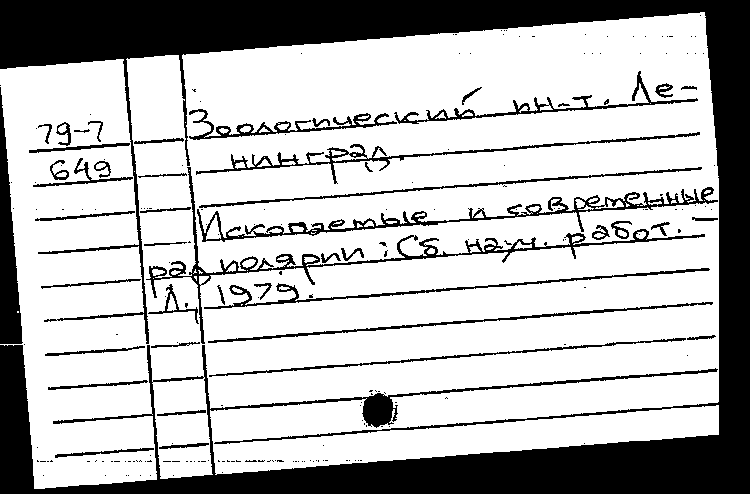 79-7
649
Зоологический ин-т. Ле-
нинград.
Ископаемые и современные
радиолярии: Сб. науч. работ. –
Л. 1979.